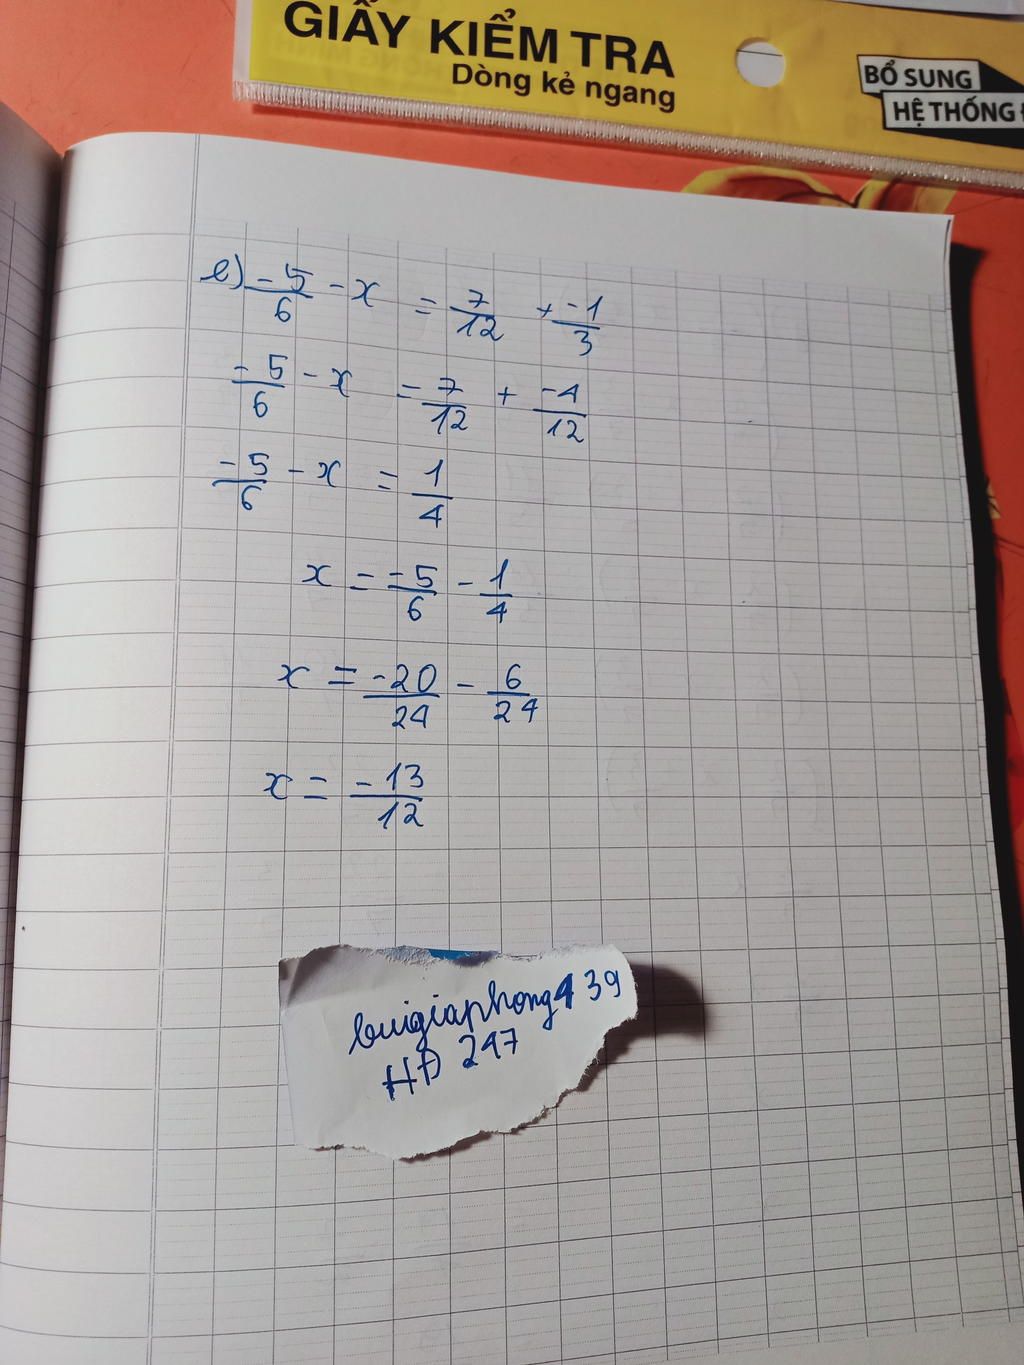 GIẤY KIỂM TRA
Dòng kẻ ngang
BỔ SUNG
HỆ THỐNG
e) -5/6 - x = 7/12 + -1/3
-5/6 - x = 7/12 + -4/12
-5/6 - x = 1/4
x = -5/6 - 1/4
x = -20/24 - 6/24
x = -13/12
buigiaphong439
HĐ 247